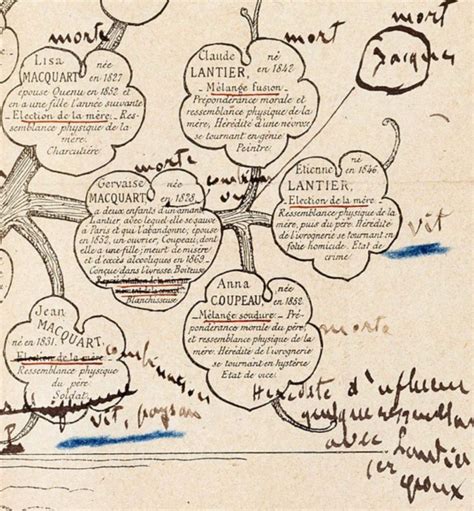 mort
morte
mort
Jacques
Lisa née
MACQUART en 1827
épouse Quenu en 1852 et
en a une fille l'année suivante
Election de la mère. Res-
semblance physique de la
mère.
Charcutière
Claude né
LANTIER, en 1842
Mélange fusion
Prépondérance morale et
ressemblance physique de la
mère, Hérédité d'une névrose
se tournant en génie
Peintre.
morte
Gervaise née
MACQUART, en 1828,
a deux enfants d'un amant
Lantier, avec lequel elle se sauve
à Paris et qui l'abandonne; épouse
en 1852, un ouvrier, Coupeau, dont
elle a une fille; meurt de misère
et d'excès alcooliques en 1869
Conçue dans l'ivresse. Boiteuse
Représentation de la
Blanchisseuse
Etienne né
LANTIER, en 1846.
Election de la mère.
Ressemblance physique de la
mère, puis du père. Hérédité
de l'ivrognerie se tournant en
folie homicide. Etat de
crime.
vit
Anna née
COUPEAU, en 1852.
Mélange soudure. Pré-
pondérance morale du père,
et ressemblance physique de la
mère. Hérédité de l'ivrognerie
se tournant en hystérie
Etat de vice.
morte
Jean
MACQUART
né en 1831.
Election de la mère
Ressemblance physique
du père.
Soldat.
combinaison
vit, paysan
Hérédité d'influence
quelque
avec Lantier
1er
époux